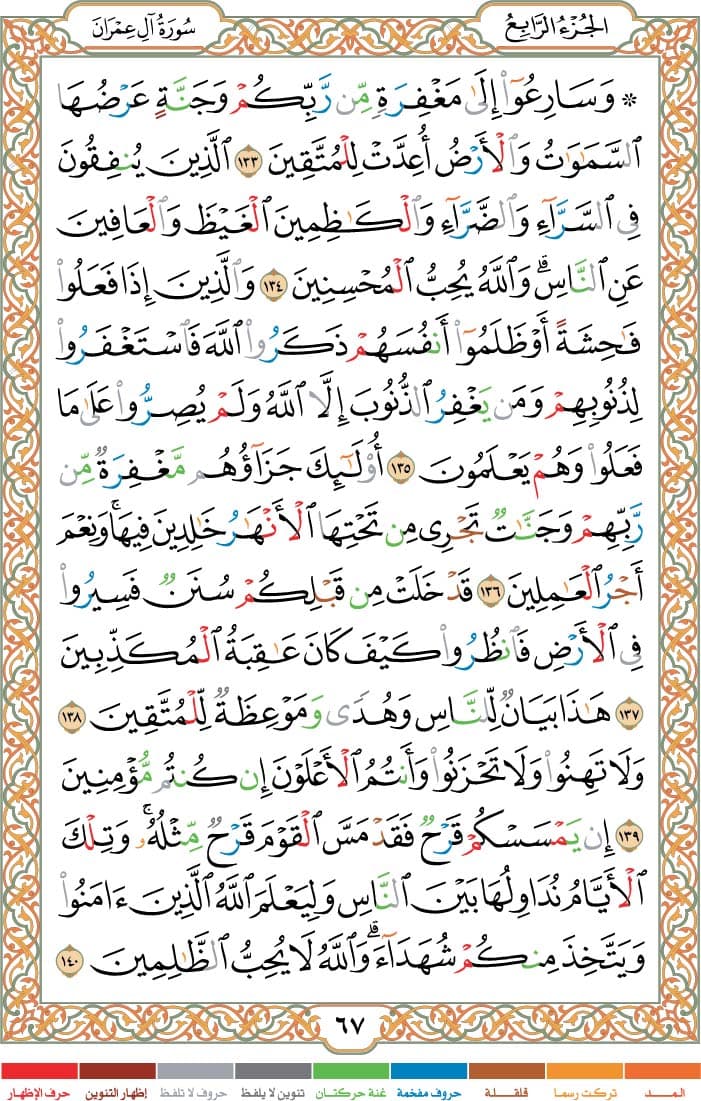 الجزء الرابع
سورة آل عمران
۞ وَسَارِعُوٓا۟ إِلَىٰ مَغْفِرَةٍ مِّن رَّبِّكُمْ وَجَنَّةٍ عَرْضُهَا
ٱلسَّمَٰوَٰتُ وَٱلْأَرْضُ أُعِدَّتْ لِلْمُتَّقِينَ ١٣٣ ٱلَّذِينَ يُنفِقُونَ
فِى ٱلسَّرَّآءِ وَٱلضَّرَّآءِ وَٱلْكَٰظِمِينَ ٱلْغَيْظَ وَٱلْعَافِينَ
عَنِ ٱلنَّاسِ ۗ وَٱللَّهُ يُحِبُّ ٱلْمُحْسِنِينَ ١٣٤ وَٱلَّذِينَ إِذَا فَعَلُوا۟
فَٰحِشَةً أَوْ ظَلَمُوٓا۟ أَنفُسَهُمْ ذَكَرُوا۟ ٱللَّهَ فَٱسْتَغْفَرُوا۟
لِذُنُوبِهِمْ وَمَن يَغْفِرُ ٱلذُّنُوبَ إِلَّا ٱللَّهُ وَلَمْ يُصِرُّوا۟ عَلَىٰ مَا
فَعَلُوا۟ وَهُمْ يَعْلَمُونَ ١٣٥ أُو۟لَٰٓئِكَ جَزَآؤُهُم مَّغْفِرَةٌ مِّن
رَّبِّهِمْ وَجَنَّٰتٌ تَجْرِى مِن تَحْتِهَا ٱلْأَنْهَٰرُ خَٰلِدِينَ فِيهَا ۚ وَنِعْمَ
أَجْرُ ٱلْعَٰمِلِينَ ١٣٦ قَدْ خَلَتْ مِن قَبْلِكُمْ سُنَنٌ فَسِيرُوا۟
فِى ٱلْأَرْضِ فَٱنظُرُوا۟ كَيْفَ كَانَ عَٰقِبَةُ ٱلْمُكَذِّبِينَ
١٣٧ هَٰذَا بَيَانٌ لِّلنَّاسِ وَهُدًى وَمَوْعِظَةٌ لِّلْمُتَّقِينَ ١٣٨
وَلَا تَهِنُوا۟ وَلَا تَحْزَنُوا۟ وَأَنتُمُ ٱلْأَعْلَوْنَ إِن كُنتُم مُّؤْمِنِينَ
١٣٩ إِن يَمْسَسْكُمْ قَرْحٌ فَقَدْ مَسَّ ٱلْقَوْمَ قَرْحٌ مِّثْلُهُۥ ۚ وَتِلْكَ
ٱلْأَيَّامُ نُدَاوِلُهَا بَيْنَ ٱلنَّاسِ وَلِيَعْلَمَ ٱللَّهُ ٱلَّذِينَ ءَامَنُوا۟
وَيَتَّخِذَ مِنكُمْ شُهَدَآءَ ۗ وَٱللَّهُ لَا يُحِبُّ ٱلظَّٰلِمِينَ ١٤٠
٦٧
المــد تركت رسما قلقلة حروف مفخمة غنة حركتان تنوين لا يلفظ حروف لا تلفظ إظهار التنوين حرف الإظهار